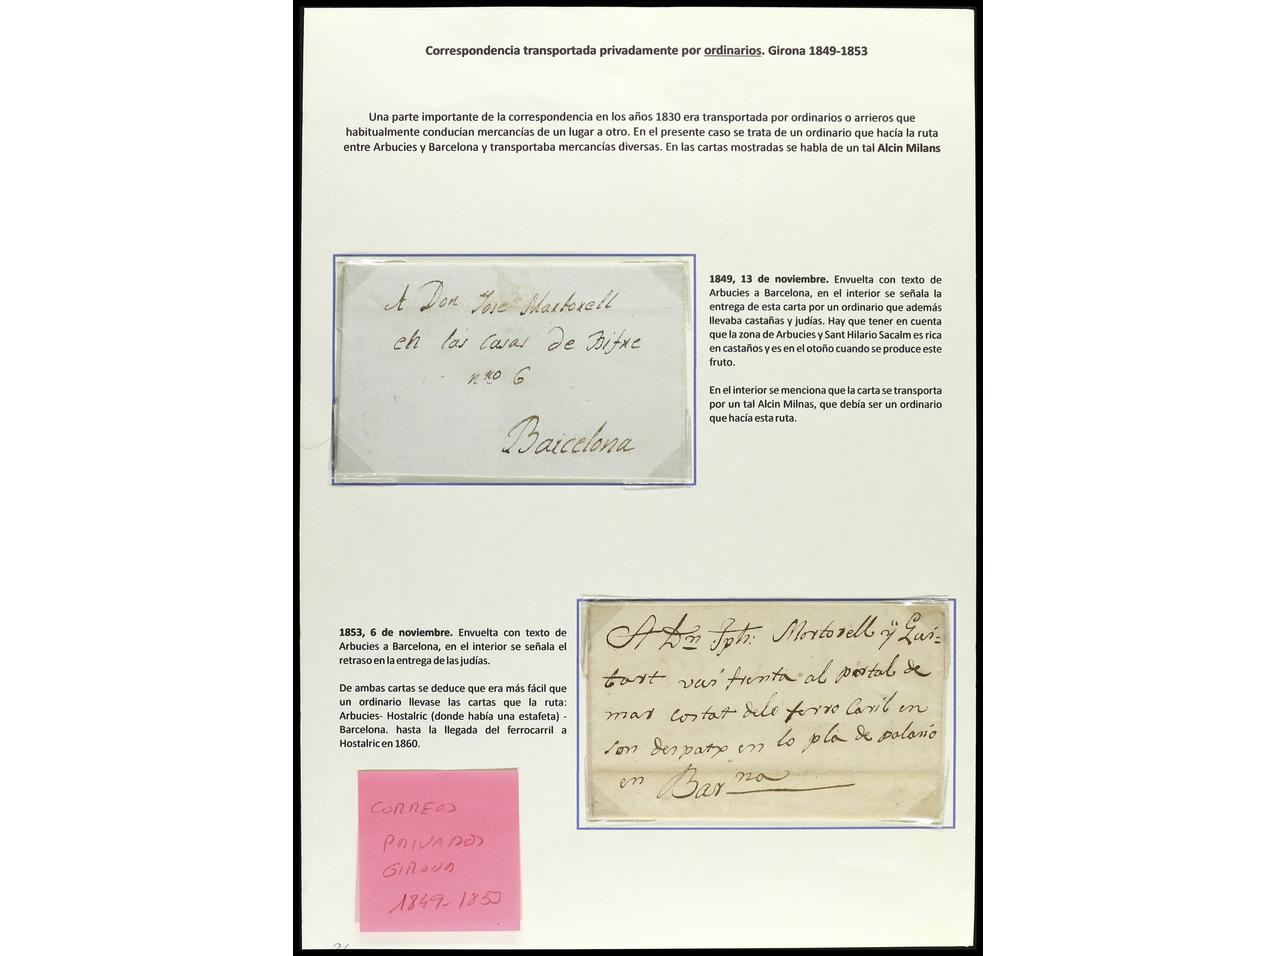 Correspondencia transportada privadamente por ordinarios. Girona 1849-1853
Una parte importante de la correspondencia en los años 1830 era transportada por ordinarios o arrieros que
habitualmente conducían mercancías de un lugar a otro. En el presente caso se trata de un ordinario que hacía la ruta
entre Arbucies y Barcelona y transportaba mercancías diversas. En las cartas mostradas se habla de un tal Alcin Milans
A Don Jose Martorell
en las Casas de Bifre
nro 6
Barcelona
1849, 13 de noviembre. Envuelta con texto de
Arbucies a Barcelona, en el interior se señala la
entrega de esta carta por un ordinario que además
llevaba castañas y judías. Hay que tener en cuenta
que la zona de Arbucies y Sant Hilario Sacalm es rica
en castaños y es en el otoño cuando se produce este
fruto.
En el interior se menciona que la carta se transporta
por un tal Alcin Milnas, que debía ser un ordinario
que hacía esta ruta.
1853, 6 de noviembre. Envuelta con texto de
Arbucies a Barcelona, en el interior se señala el
retraso en la entrega de las judías.
De ambas cartas se deduce que era más fácil que
un ordinario llevase las cartas que la ruta:
Arbucies- Hostalric (donde había una estafeta) -
Barcelona. hasta la llegada del ferrocarril a
Hostalric en 1860.
A Dn Jph: Martorell ÿ Gui=
tart vui frenta al portal de
mar costat delo ferro Caril en
son despatx en lo pla de palasio
en Barna
CORREOS
PRIVADOS
GIRONA
1849-1853